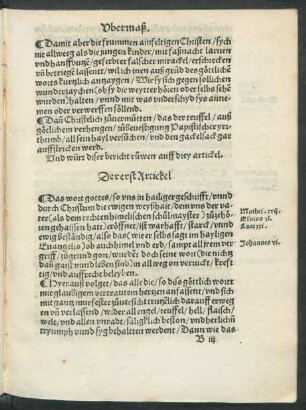 Vbermaß.
Damit aber die frummen ainfeltigen Christen / sych
nie allweeg als die jungen kinder / mit faßnacht laruen
vnd
mirackel / erschrecken
vñ betriegẽ lassent / wil ich inen auß grũd des götlichẽ
worts kürtzlich anzaygen / Wes sy sich gegen söllichen
wunderzaychen (ob sy die weytter hören oder selbs sehẽ
wurden) halten / vnnd mit was vnderschyd sys anne
men oder verwerffen söllend.
Dañ Christelich
das der teuffel / auß
götlichem verhengen /
Papistischer yrr
thumb / all sein eusserst versůchen / vnd den gackelsack gar
aufstricken werd.
Vnd würt diser bericht růwen auff drey artickel.
Der erst Artickel
Das wort gottes / so vns in hailiger geschrifft / vnnd
durch Christum die ewigen weyßhait / dem vns der va
ter (als dem rechten himelischen schůlmayster) zůzehö-
ren gehaissen hatt / eröffnet / ist warhafft / starck / vnnd
ewig bestãdig / also das er selbs sagt im hayligen
Euangelio) Ob auch himel vnd erd / sampt all rem ver
zůgrund gon / wurdẽ doch seine wort (die nichtz
dañ gaist vnd lebẽ sind) in all weg on verruckt / kreff
tig / vnd auffrecht beleyben.
Hyerauß volget / das alle die / so diß götlich wort
mit glaubigem vertrauten hertzen anfassent / vnd sich
mit gantz
trutzlich darauff erweg
en vñ verlassend / wider all engel / teuffel / hell / flaisch /
welt / vnd allen vnradt / säligklich beston / vnd herlichñ
tryumph vnnd syg behalten werdent / Dann wie das
B iij
Mathei. xvij.
Luce xxi.
Johannes vi.